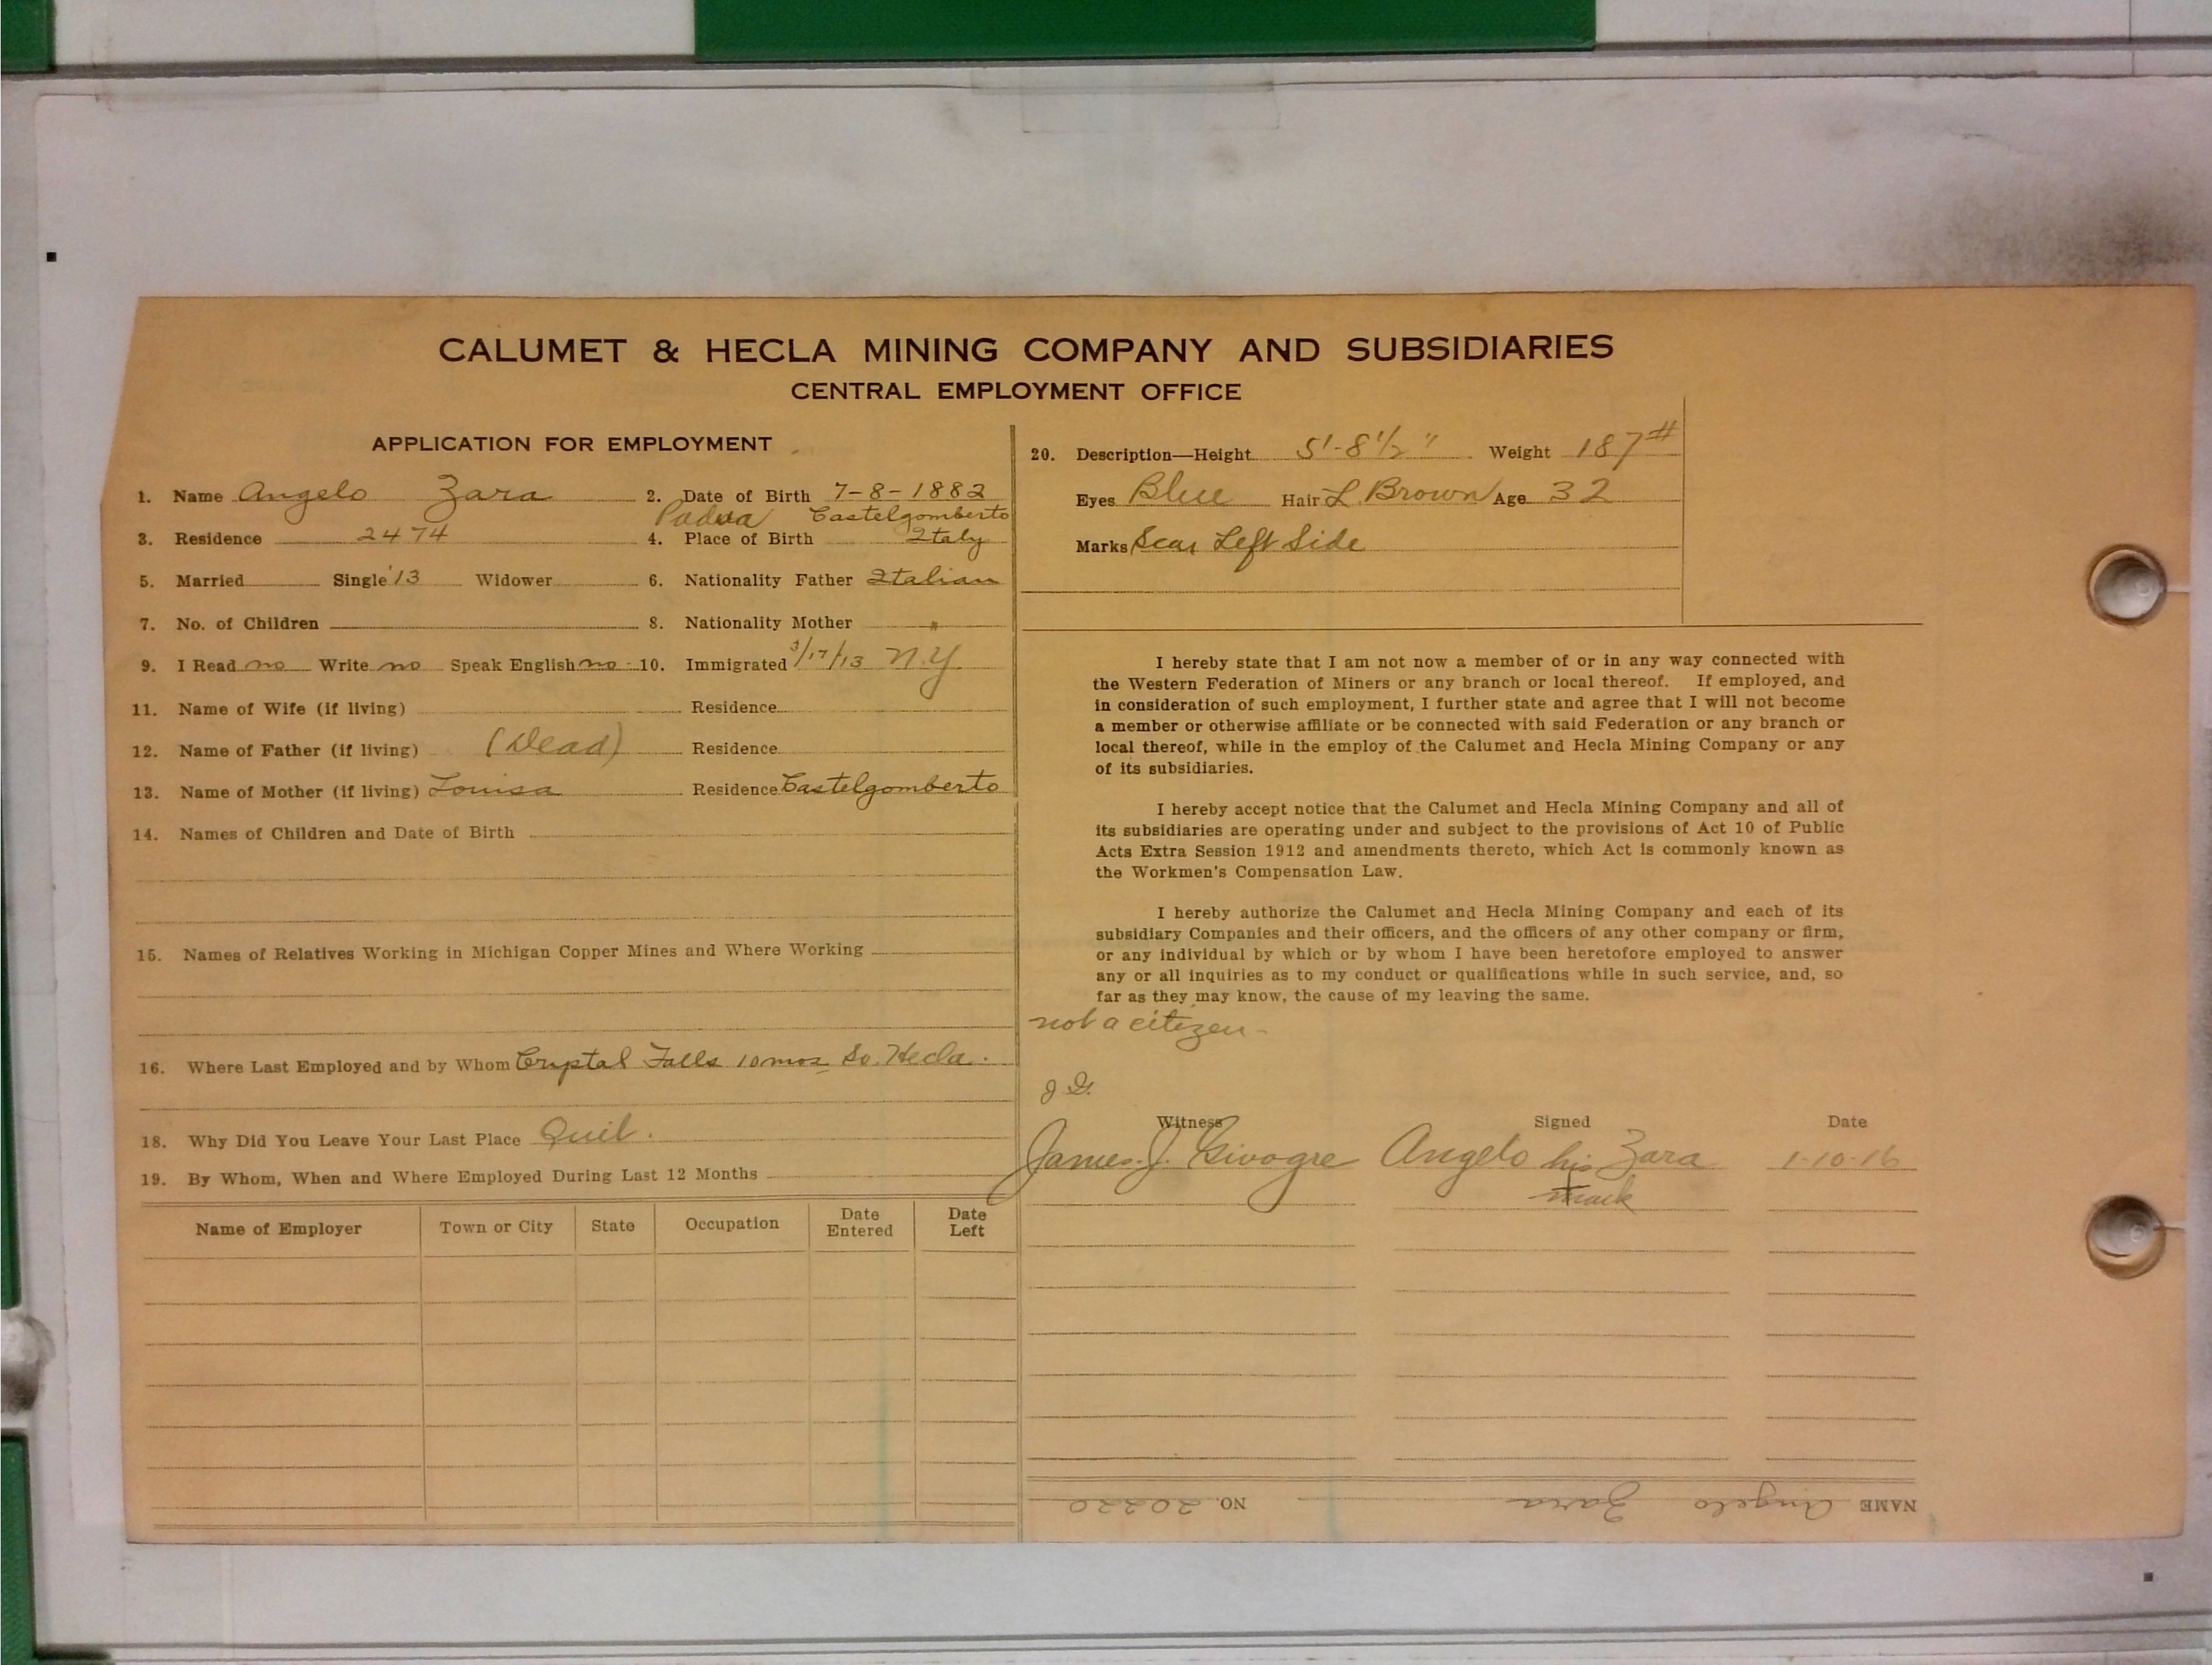 CALUMET & HECLA MINING COMPANY AND SUBSIDIARIES
CENTRAL EMPLOYMENT OFFICE
APPLICATION FOR EMPLOYMENT
1. Name Angelo Zara 2. Date of Birth 7-8-1882
Padua Castelgomberto
3. Residence 2474 4. Place of Birth Italy
5. Married Single '13 Widower 6. Nationality Father Italian
7. No. of Children 8. Nationality Mother "
9. I Read no Write no Speak English no 10. Immigrated 3/17/13 N.Y.
11. Name of Wife (if living) Residence
12. Name of Father (if living) (Dead) Residence
13. Name of Mother (if living) Louisa Residence Castelgomberto
14. Names of Children and Date of Birth
15. Names of Relatives Working in Michigan Copper Mines and Where Working
16. Where Last Employed and by Whom Crystal Falls 10 mos So. Hecla.
18. Why Did You Leave Your Last Place Quit.
19. By Whom, When and Where Employed During Last 12 Months
Name of Employer Town or City State Occupation Date Entered Date Left
20. Description—Height 5'-8 1/2" Weight 187#
Eyes Blue Hair L. Brown Age 32
Marks Scar Left Side
I hereby state that I am not now a member of or in any way connected with
the Western Federation of Miners or any branch or local thereof. If employed, and
in consideration of such employment, I further state and agree that I will not become
a member or otherwise affiliate or be connected with said Federation or any branch or
local thereof, while in the employ of the Calumet and Hecla Mining Company or any
of its subsidiaries.
I hereby accept notice that the Calumet and Hecla Mining Company and all of
its subsidiaries are operating under and subject to the provisions of Act 10 of Public
Acts Extra Session 1912 and amendments thereto, which Act is commonly known as
the Workmen's Compensation Law.
I hereby authorize the Calumet and Hecla Mining Company and each of its
subsidiary Companies and their officers, and the officers of any other company or firm,
or any individual by which or by whom I have been heretofore employed to answer
any or all inquiries as to my conduct or qualifications while in such service, and, so
far as they may know, the cause of my leaving the same.
not a citizen-
J.G.
Witness Signed Date
James J. Givogre Angelo his Zara 1-10-16
mark
NAME Angelo Zara NO. 20220